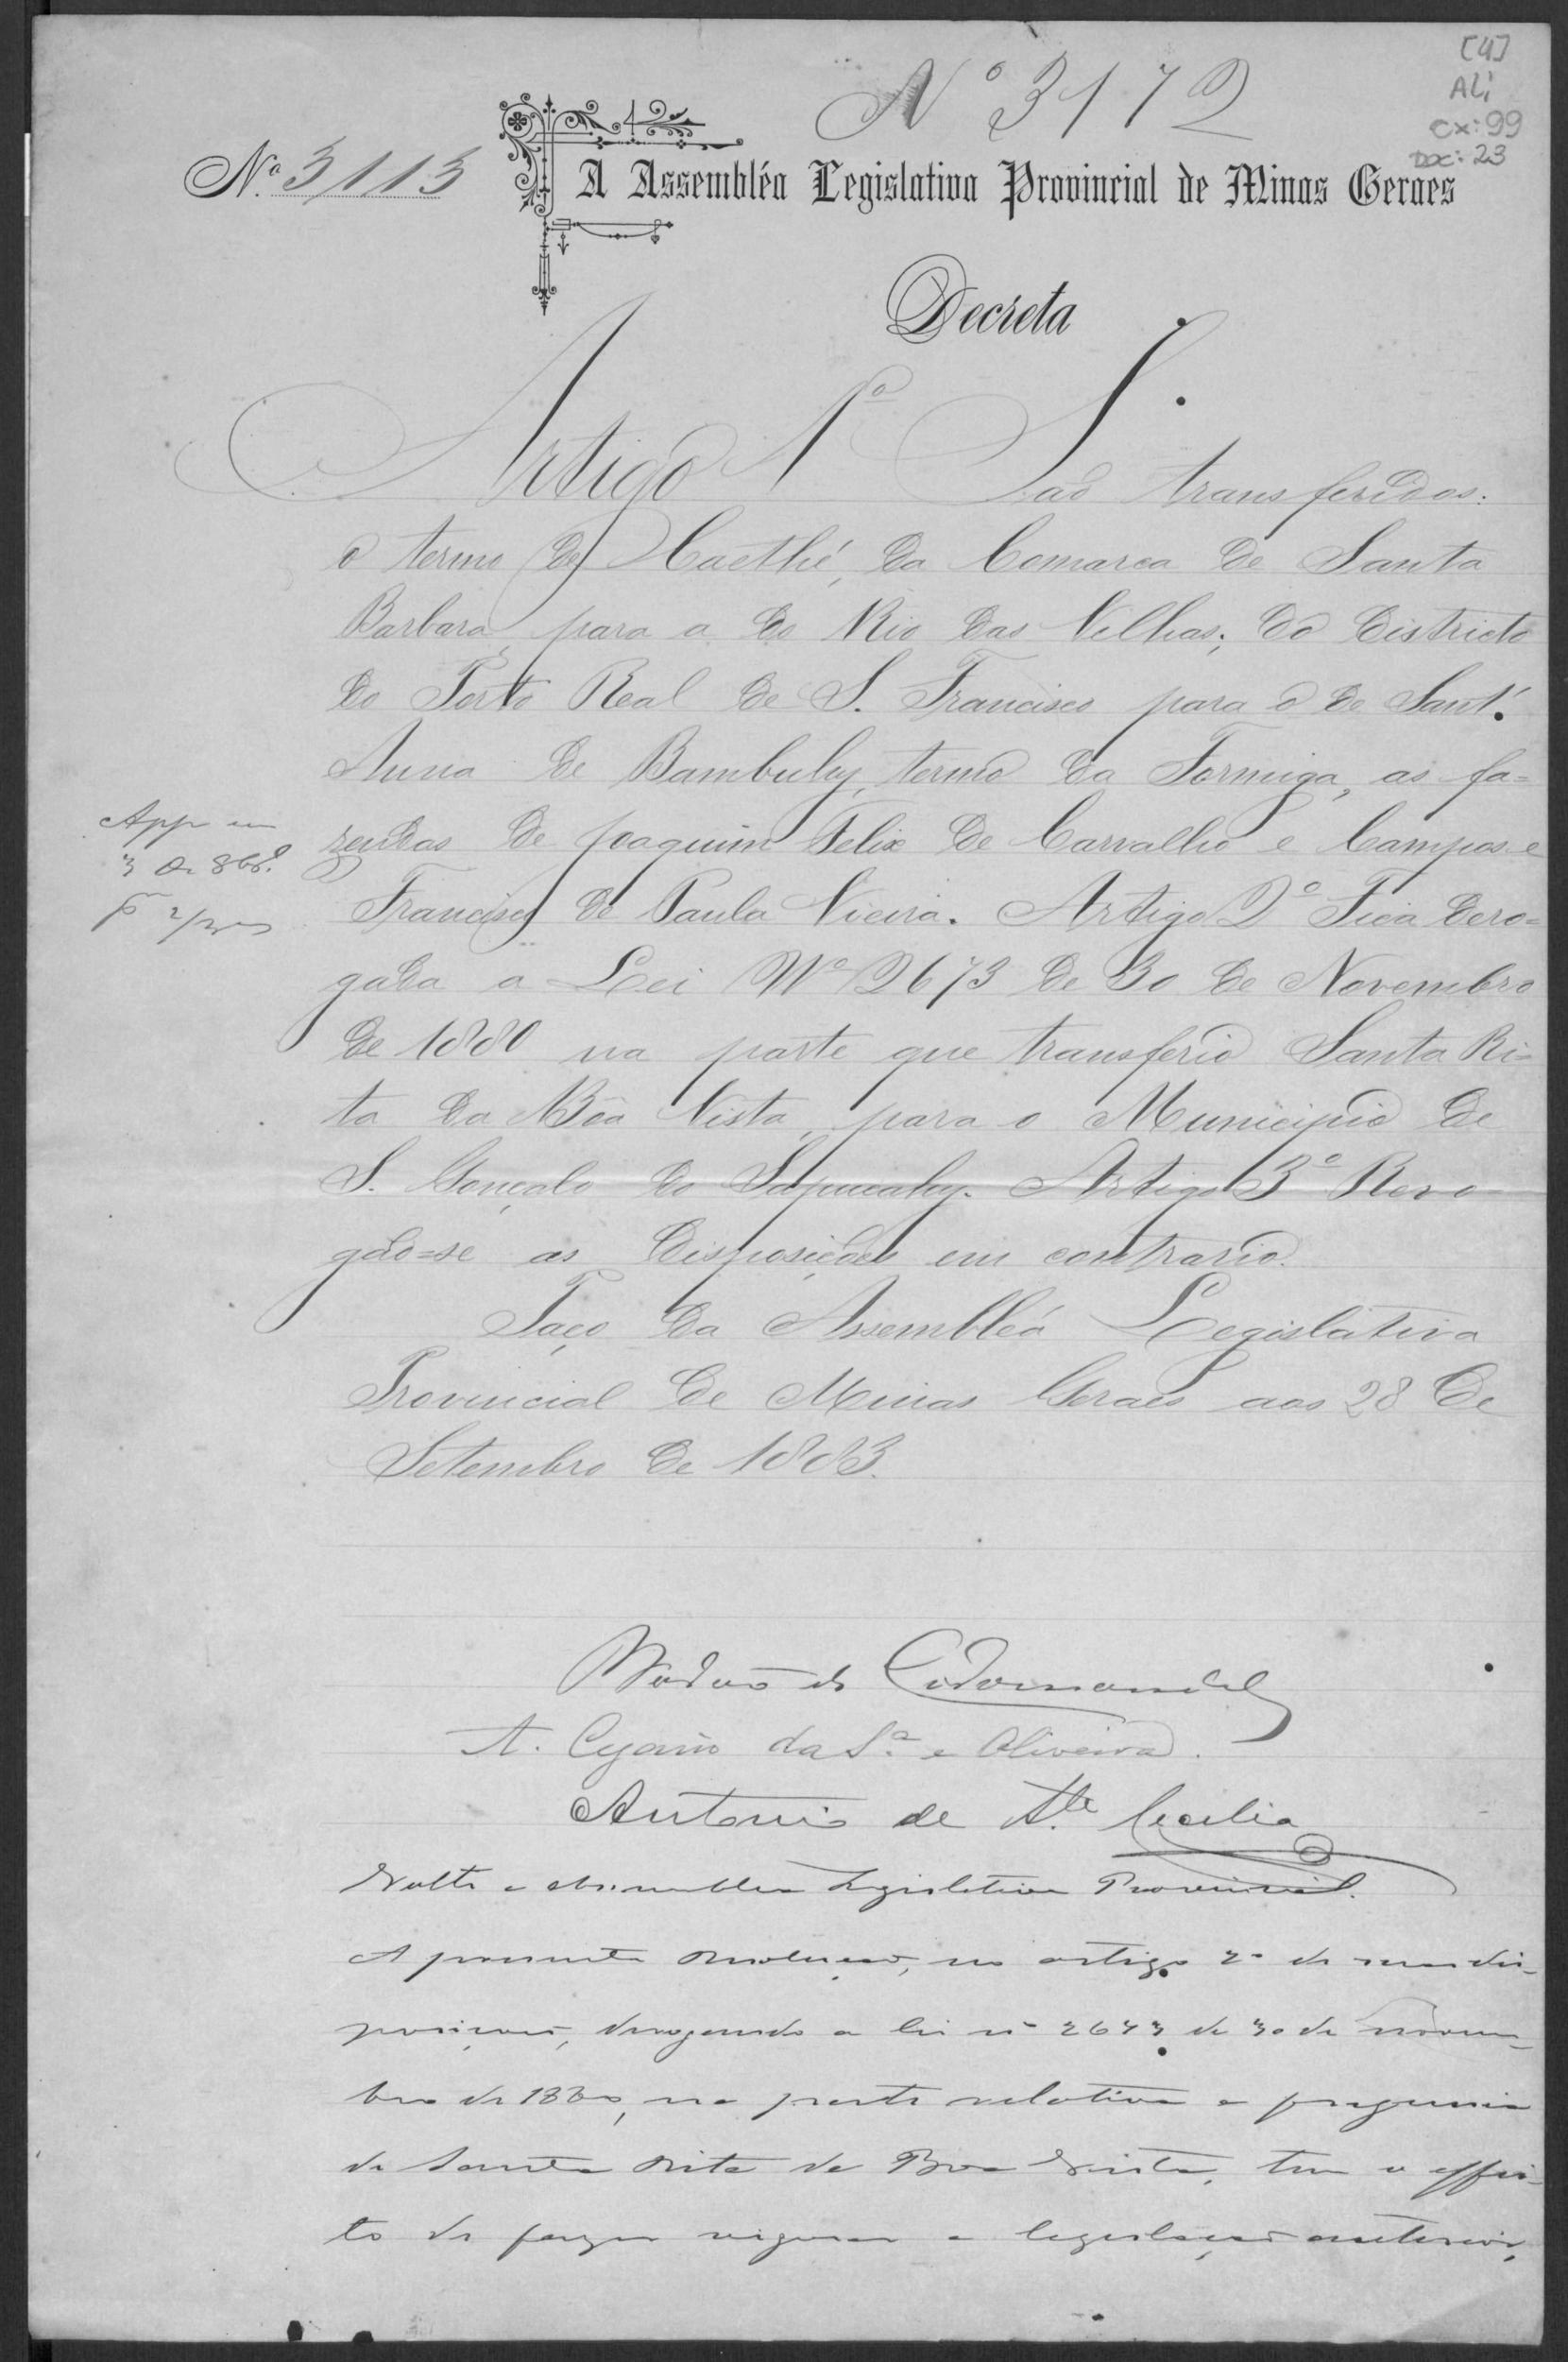 [4]
ALi
cx: 99
Doc: 23
Nº 3172
Nº 3113
A Assembléa Legislativa Provincial de Minas Geraes
Decreta
Artigo 1º São transferidos:
o termo de Caethé, da Comarca de Santa
Barbara, para a do Rio das Velhas; do districto
do Porto Real de S. Francisco para o de Sant'
Anna de Bambuhy, termo da Formiga, as fa=
zendas de Joaquim Felix de Carvalho e Campos e
Francisco de Paula Vieira. Artigo 2º Fica dero=
gada a Lei Nº 2673 de 30 de Novembro
de 1880 na parte que transferio Santa Ri=
ta da Bôa Vista, para o Municipio de
S. Gonçalo do Sapucahy. Artigo 3º Revo=
gão=se as disposições em contrario.
Paço da Assembléa Legislativa
Provincial de Minas Geraes aos 28 de
Setembro de 1883.
App em
A. Cyrino da Sª e Oliveira.
Antonio de Sta Cecilia
Volte a Assemblea Legislativa Provincial.
A presente resolução, no artigo 2º de suas dis-
posições, derogando a lei nº 2673 de 30 de novem-
bro de 1880, na parte relativa a freguesia
de Santa Rita da Boa Vista, tem o effei-
to de fazer vigorar a legislação anterior,